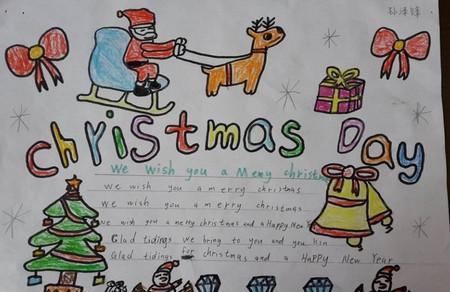 Christmas Day
We wish you a Merry christm
We wish you a merry christmas
We wish you a merry christmas
We wish you a merry christmas and a Happy New Y
Glad tidings we bring to you and you kin
Glad tidings for christmas and a Happy New Year